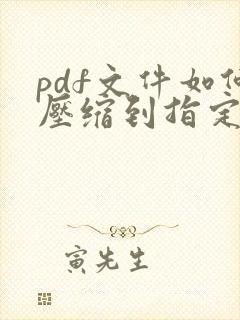 pdf文件如何
压缩到指定
寅先生